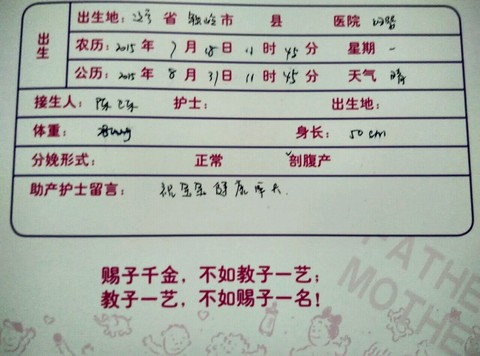 出生
出生地：辽宁省 铁岭市 县 医院
农历：2015年 7月18日11时45分 星期 一
公历：2015年 8月31日11时45分 天气 晴
接生人：陈 护士： 出生地：
体重： 身长：50cm
分娩形式： 正常 ✓剖腹产
助产护士留言：祝宝宝健康成长.
赐子千金，不如教子一艺；
教子一艺，不如赐子一名！
FATHE
MOTHE